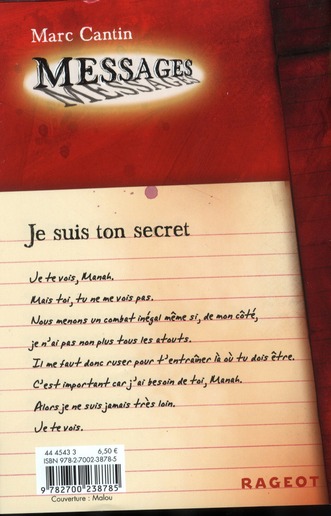 Marc Cantin
MESSAGES
Je suis ton secret
Je te vois, Manah.
Mais toi, tu ne me vois pas.
Nous menons un combat inégal même si, de mon côté,
je n'ai pas non plus tous les atouts.
Il me faut donc ruser pour t'entraîner là où tu dois être.
C'est important car j'ai besoin de toi, Manah.
Alors je ne suis jamais très loin.
Je te vois.
44 4543 3 6,50 €
ISBN 978-2-7002-3878-5
9 782700 238785
Couverture : Malou
RAGEOT